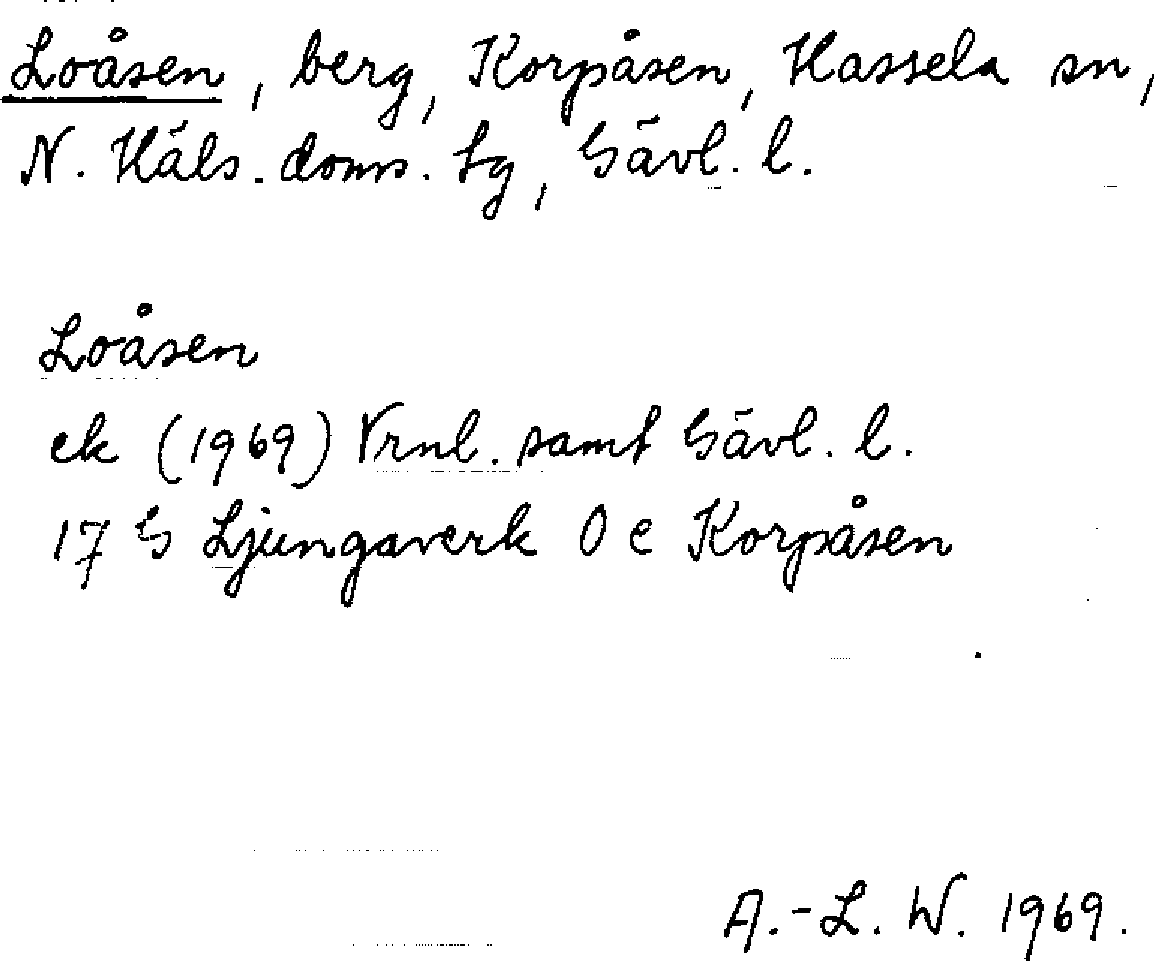 Loåsen, berg, Korpåsen, Hassela sn,
N. Häls. doms. tg, Gävl. l.
Loåsen
ek (1969) Vrnl. samt Gävl. l.
17 G Ljungaverk 0 e Korpåsen
A.-L. W. 1969.